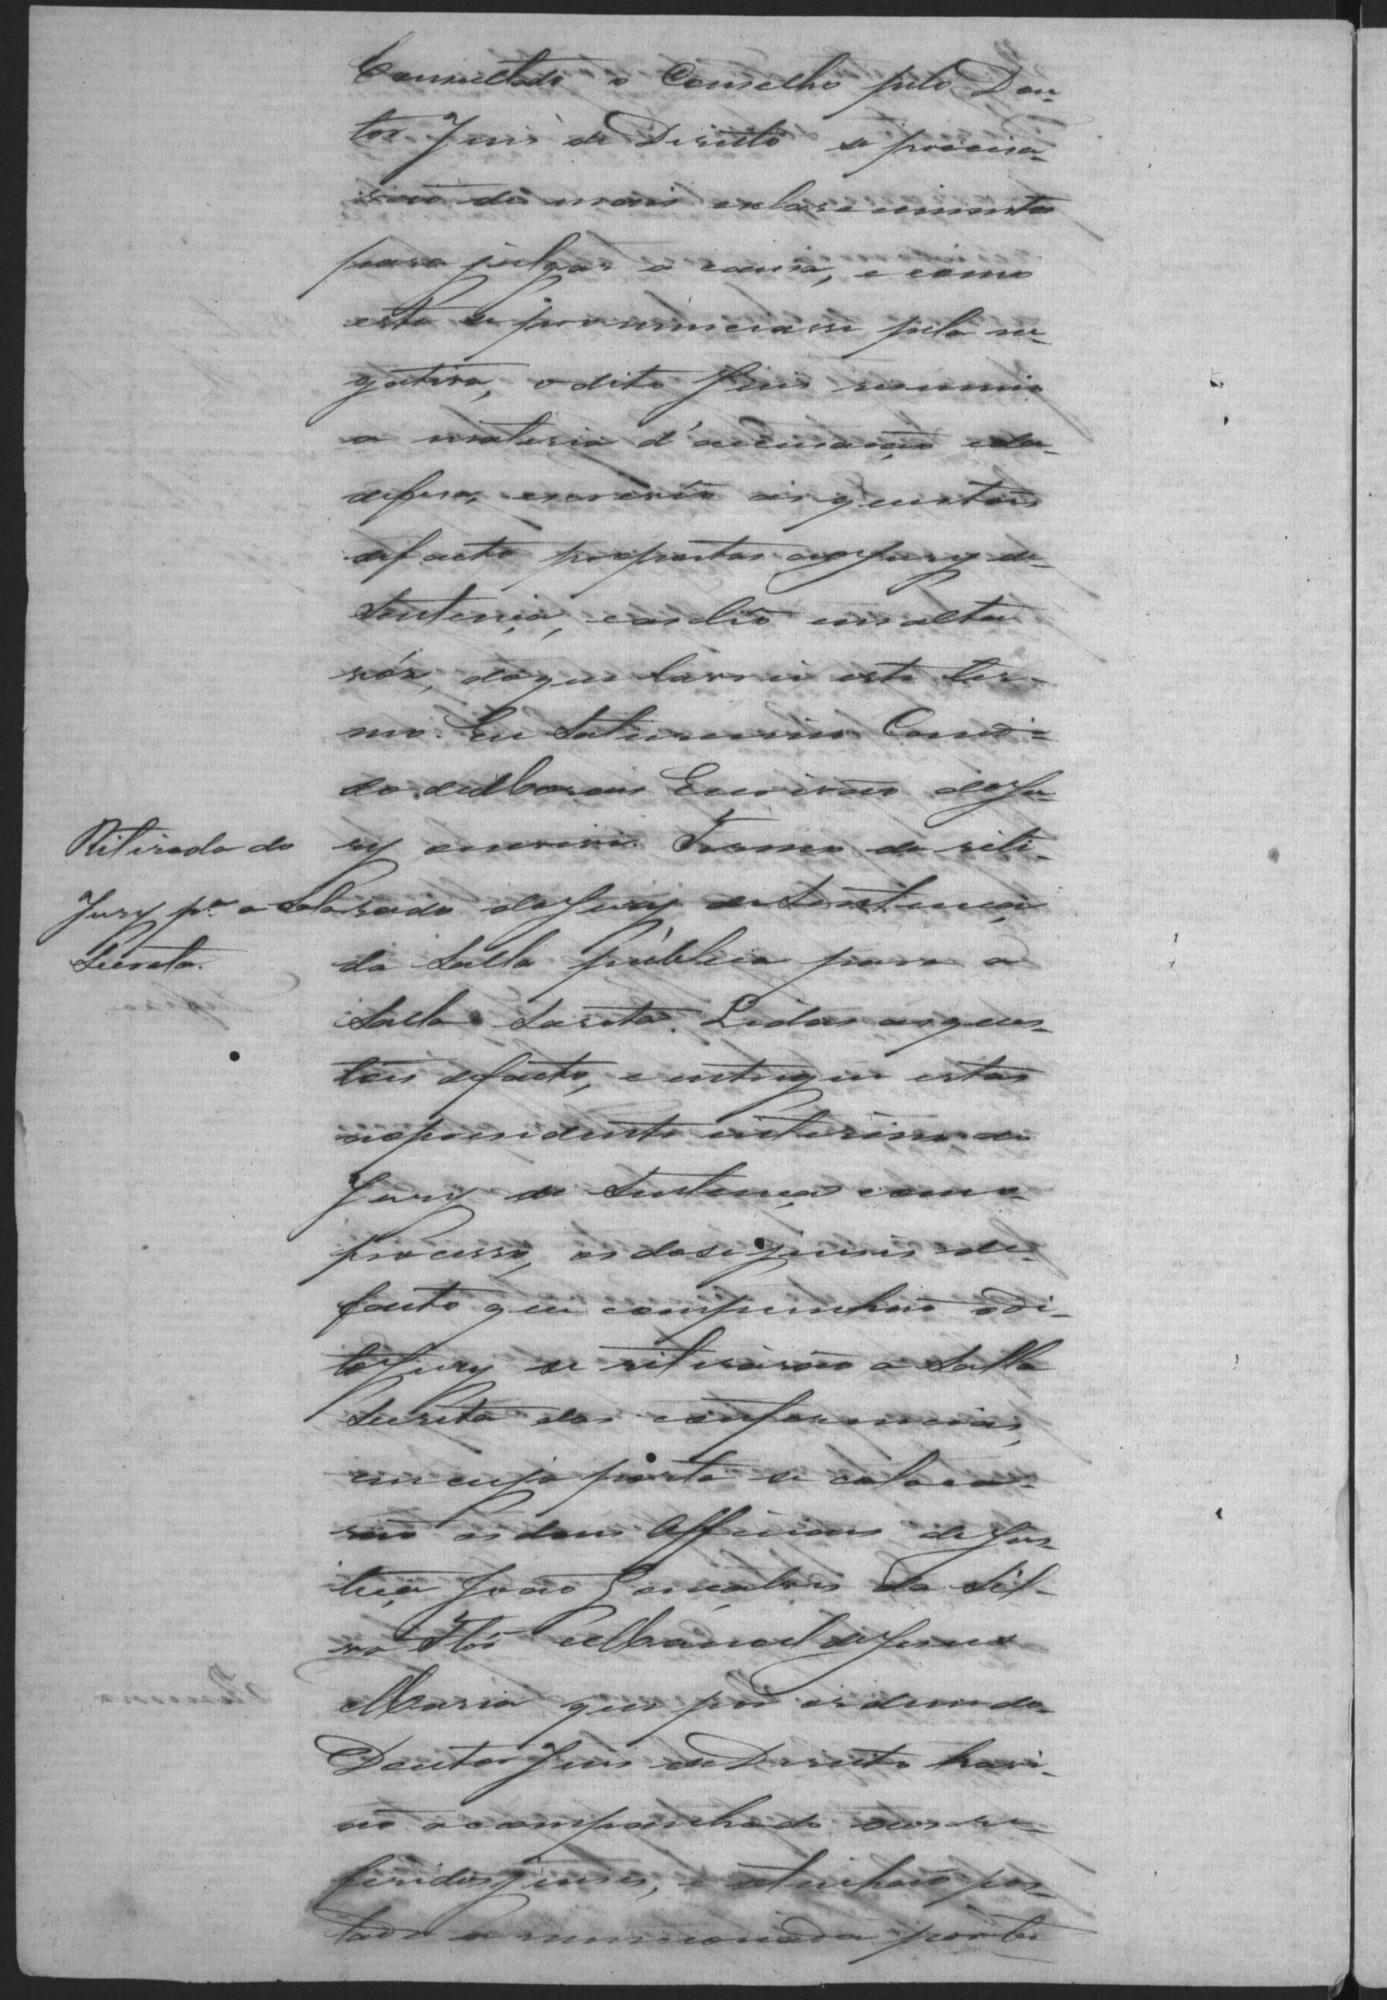 Consultado o Conselho pelo Dou-
tor Juis de Direito se precisa-
vão de mais esclarecimentos
para julgar a causa, e como
este se pronunciasse pela ne-
gativa, o dito Juis resumio
a materia d'accusação e da
defesa, escreveo as questões
de facto propostas ao Jury de
Sentença, e as leo em alta
vós, do que lavrei este ter-
mo. Eu Saturnino Candi-
do de Moraes Escrivão do Ju-
ry escrevi. Termo da reti-
Retirada do
Jury pª a Salla
Secreta.
rada do Jury de Sentença
da Salla publica para a
Salla Secreta. Lidas as ques-
tões de facto, e entregue estas
ao presidente interino do
Jury de Sentença com o
processo, os dose juises de
facto que compunhão o di-
to Jury se retirárão a Salla
Secreta das conferencias,
em cuja porta se colocá-
rão os dous Officiaes de Jus-
tiça João Gonçalves da Sil-
va e Manoel de Jesus
Maria que por ordem do
Doutor Juis de Direito havi-
ão acompanhado aos re-
feridos juises, e se tinhão pos-
tado a mencionada porta